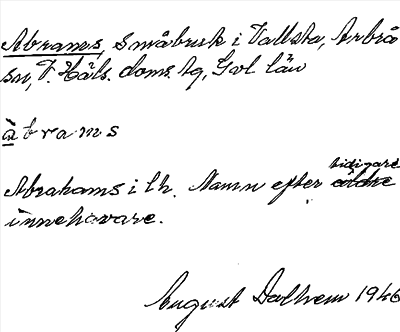 Abrams, Småbruk i Vallsta, Arbrå
sn, V. Häls. doms. tg, Gvl län
àbrams
Abrahams i lh. Namn efter tidigare äldre
innehavare.
August Dalhem 1946